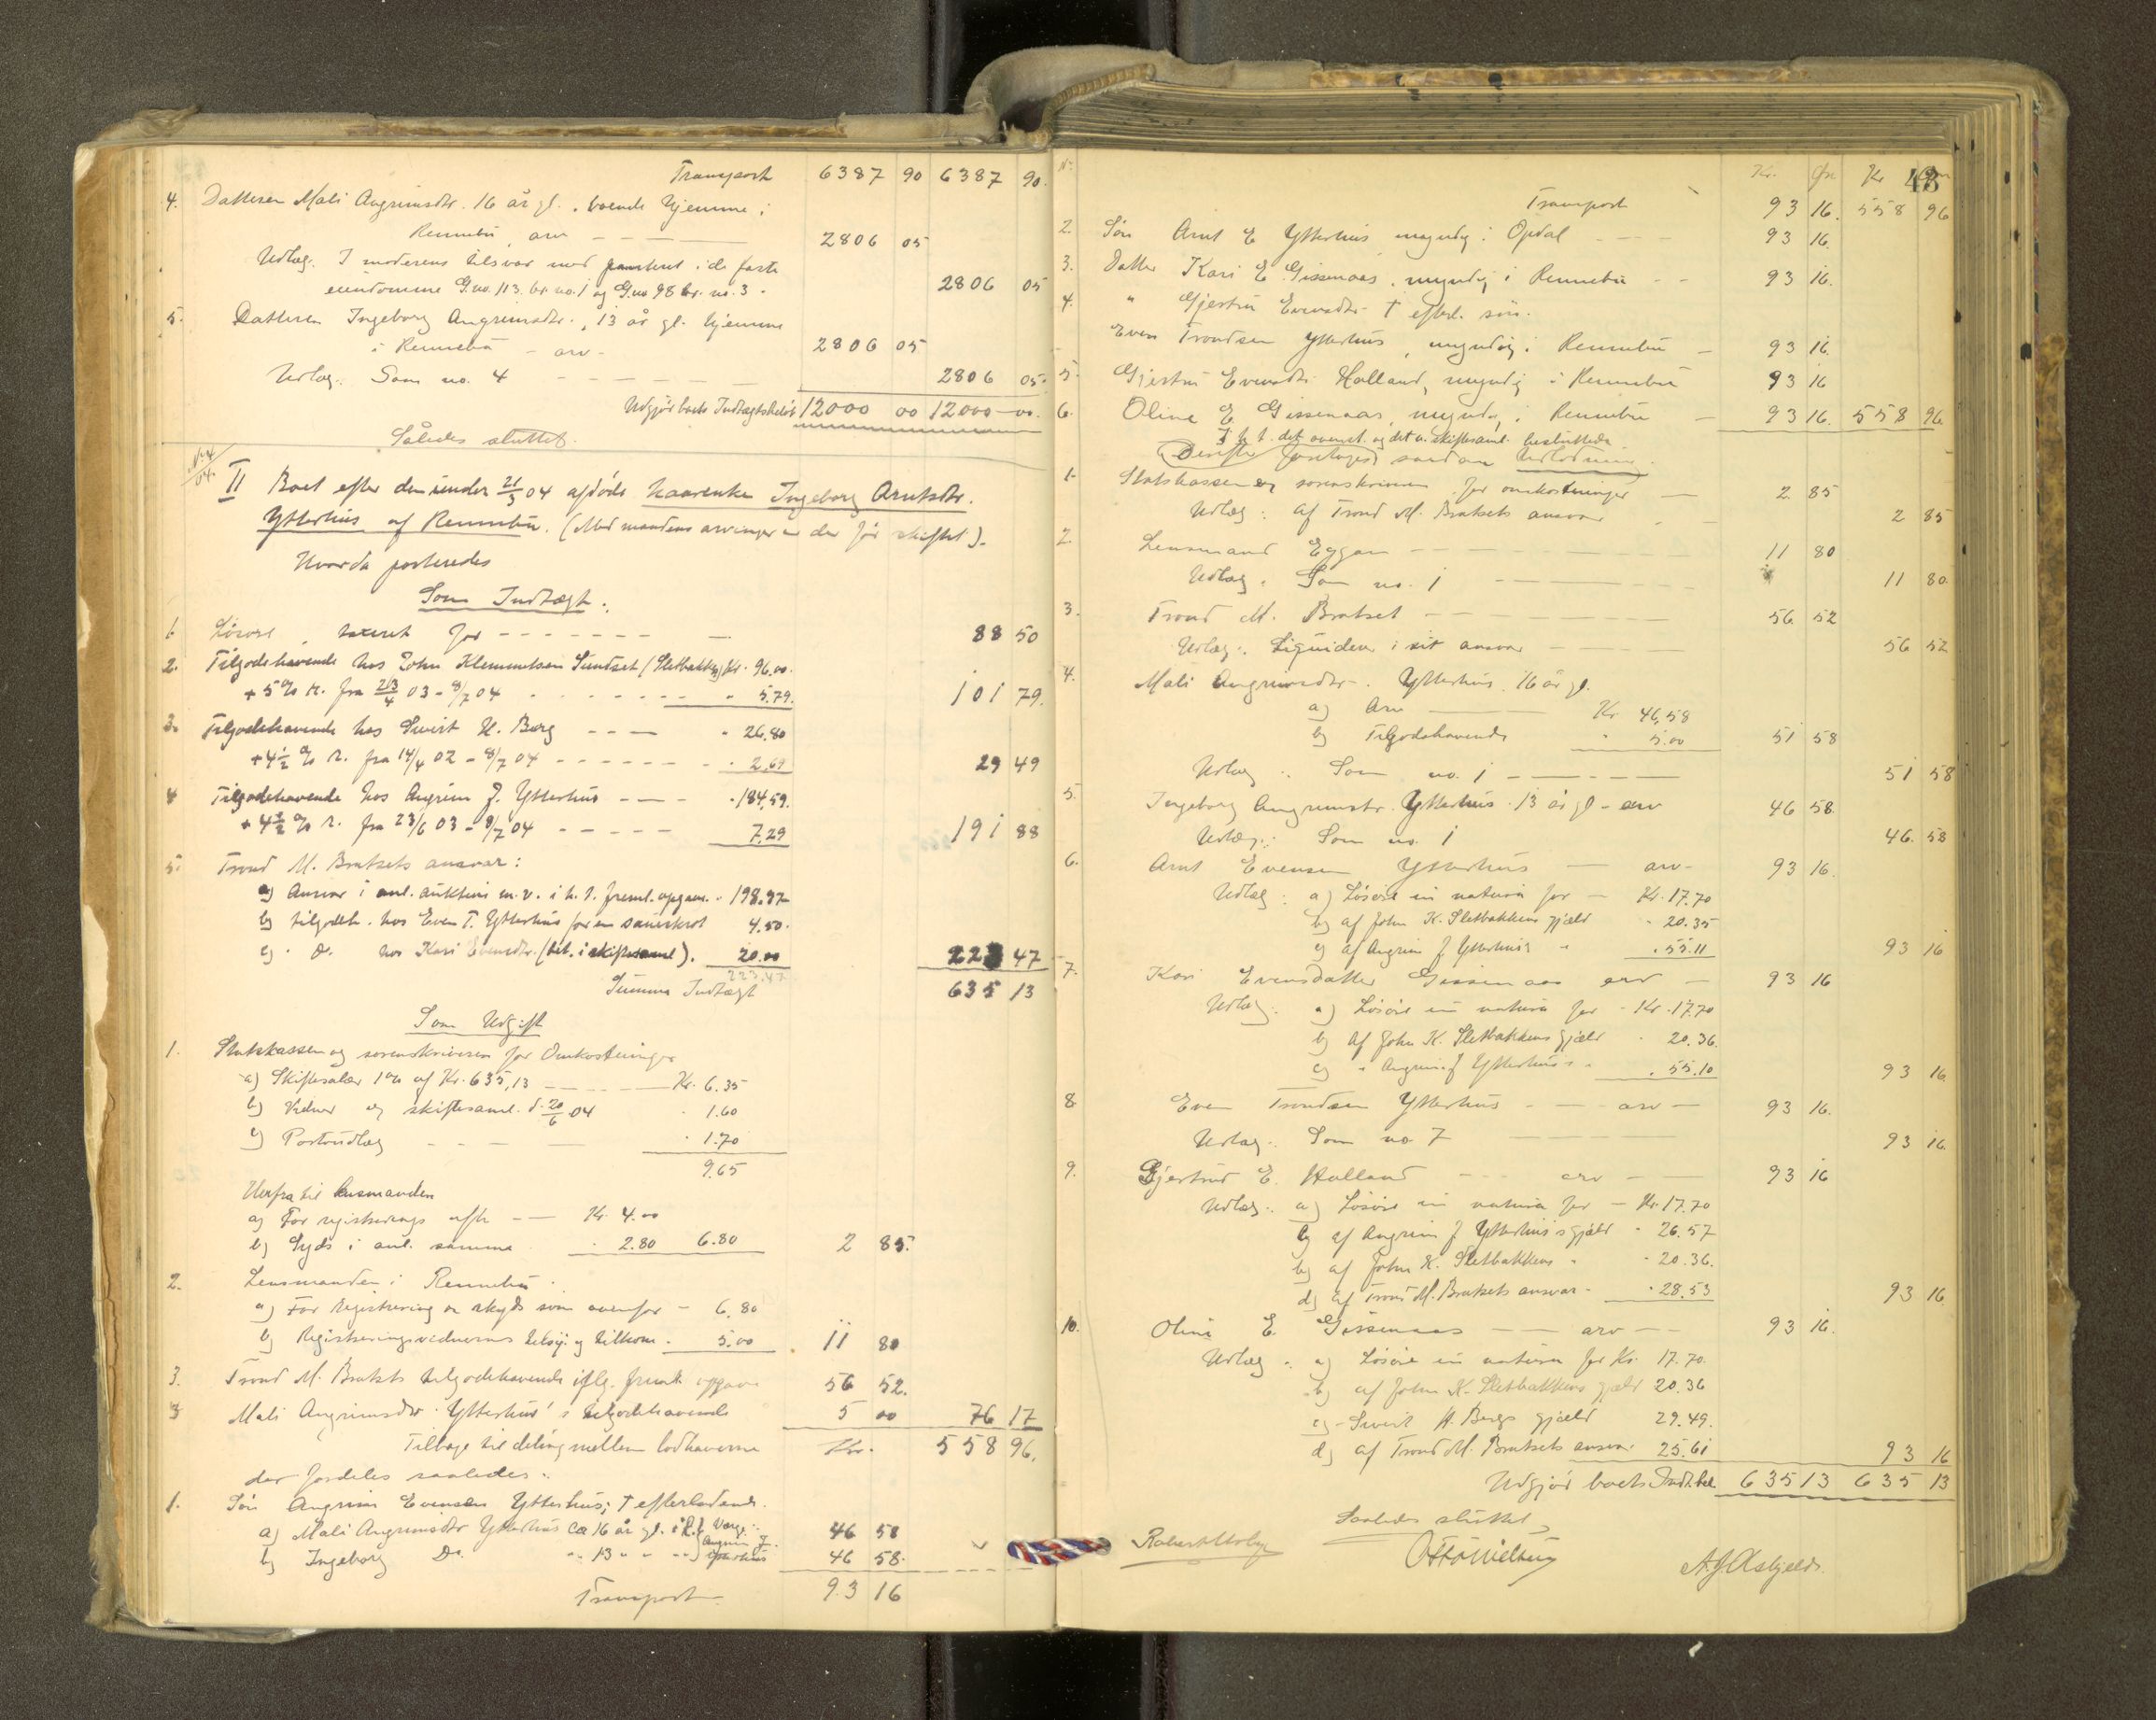 Transport 6387 90 6387 90.
4. Datteren Mali Angrimsdtr. 16 år gl. boende hjemme i
Rennebu, arv - — 2806 05
Udlæg. I moderens tilsvar mod panteret i de faste
eiendomme G.no. 113. br. no. 1 og G.no 98 br. no. 3. 2806 05
5. Datteren Ingeborg Angrimsdtr., 13 år gl. hjemme
i Rennebu - arv - 2806 05
Udlæg: Som no. 4 - - - - 2806 05.
Udgjør boets Indtægtsbeløb 12000 00 12000 00.
Således sluttet.
N. 4/04.
II Boet efter den under 21/5 04 afdøde kaarenke Ingeborg Arntsdtr.
Ytterhus af Rennebu. (Med mandens arvinger er der før skiftet).
Hvorda posteredes
Som Indtægt.
1. Løsøre, taxeret for - - - - - - 88 50
2. Tilgodehavende hos John Klemmetsen Sundset (Sletbakken) Kr. 96.00.
+ 5% r. fra 23/4 03 - 8/7 04 - - - - - - " 5.79. 101 79.
3. Tilgodehavende hos Sivert H. Berg - - — " 26.80
+ 4½ % r. fra 14/4 02 - 8/7 04 - - - - - - " 2.69 29 49
4 Tilgodehavende hos Angrim J. Ytterhus - — - " 184.59.
+ 4½ % r. fra 23/6 03 - 8/7 04 - - - - - 7.29 191 88
5. Trond M. Bratsets ansvar:
a) Ansvar i anl. auktion m.v. i h. t. freml. opgave. " 198.97
b) tilgodeh. hos Even T. Ytterhus for en 4.50.
c) " Do. hos Kari Evensdtr. (bet. i skiftesaml). 20.00 223 47
223.47
Summa Indtægt 635 13
Som Udgift
1. Statskassen og sorenskriveren for Omkostninger
a) Skiftesalær 1% af Kr. 635,13 — - - — Kr. 6.35
b) Vidner og skiftesaml. d. 20/6 04 " 1.60
c) Portoudlæg - - - — " 1.70
9.65
Herfra til lensmanden
a) For registrerings - — Kr. 4.00
b) Skyds i anl. samme " 2.80 6.80 2 85.
2. Lensmanden i Rennebu.
a) For Registrering og skyds som ovenfor - 6.80
b) Registreringsvidnernes 5.00 11 80
3. Trond M. Bratsets tilgodehavende iflg. freml. opgave 56 52.
Mali Angrimsdtr. Ytterhus's tilgodehavende 5 00 76 17
Tilbage til deling mellem lodhaverne Kr. 558 96.
der fordeles saaledes:
1. Søn Angrim Evensen Ytterhus; † efterladende.
a) Mali Angrimsdtr Ytterhus ca 16 år gl. i R. } Værg: 46 58
b) Ingeborg Do. " 13 " " " } Angrim J. Ytterhus 46 58.
Transport 93 16
N. Kr. Øre Kr 43
Transport 93 16. 558 96
2. Søn Arnt E Ytterhus myndig i Opdal - - - 93 16.
3. Datter Kari E. Gissenaas, myndig i Rennebu - - 93 16.
4. " Gjertru Evensdtr † efterl. søn.
Even Trondsen Ytterhus, myndig i Rennebu - 93 16.
5. Gjertru Evensdtr Halland, myndig i Rennebu 93 16
6. Oline E Gissenaas, myndig, i Rennebu - 93 16. 558 96
I h. t. det ovenst. og det i skiftesaml. besluttede
(Derefter foretoges) saadan Udlodning.
1. Statskassen og sorenskriveren for omkostninger — 2 85
Udlæg: Af Trond M. Bratsets ansvar - - 2 85
2. Lensmand Eggan - - - - 11 80
Udlæg: Som no. 1 - - - 11 80
3. Trond M. Bratset - - — 56 52
Udlæg: Liquideres i sit ansvar - - — 56 52
4. Mali Angrimsdtr. Ytterhus 16 år gl.
a) Arv - — Kr 46,58
b) Tilgodehavende " 5.00 51 58
Udlæg: Som no. 1 - - - 51 58
5. Ingeborg Angrimsdtr. Ytterhus 13 år gl - arv 46 58.
Udlæg: Som no. 1 46. 58
6. Arnt Evensen Ytterhus — arv - 93 16.
Udlæg: a) Løsøre in natura for - Kr. 17.70
b) af John K. Sletbakkens gjæld " 20.35
c) af Angrim J Ytterhus's " " 55.11 93 16
7. Kari Evensdatter Gissenaas arv - 93 16
Udlæg. a) Løsøre in natura for - Kr. 17.70
b) Af John K. Sletbakkens gjæld " 20.36.
c) " Angrim J Ytterhus's " " 55.10 93 16
8. Even Trondsen Ytterhus - — arv - 93 16.
Udlæg: Som no 7 93 16.
9. Gjertrud E. Halland - - arv - — 93 16
Udlæg: a) Løsøre in natura for - Kr. 17.70
b) af Angrim J Ytterhus's gjæld " 26.57
b) af John K. Sletbakkens " " 20.36.
d) af Trond M. Bratsets ansvar - " 28.53 93 16
10. Olina E. Gissenaas - — arv - - 93 16.
Udlæg: a) Løsøre in natura for Kr. 17.70.
b) af John K. Sletbakkens gjæld 20.36
c) - Sivert H. Bergs gjæld 29.49.
d) af Trond M. Bratsets ansvar. 25.61 93 16
Udgjør boets Indt.bel. 635 13 635 13
Saaledes sluttet